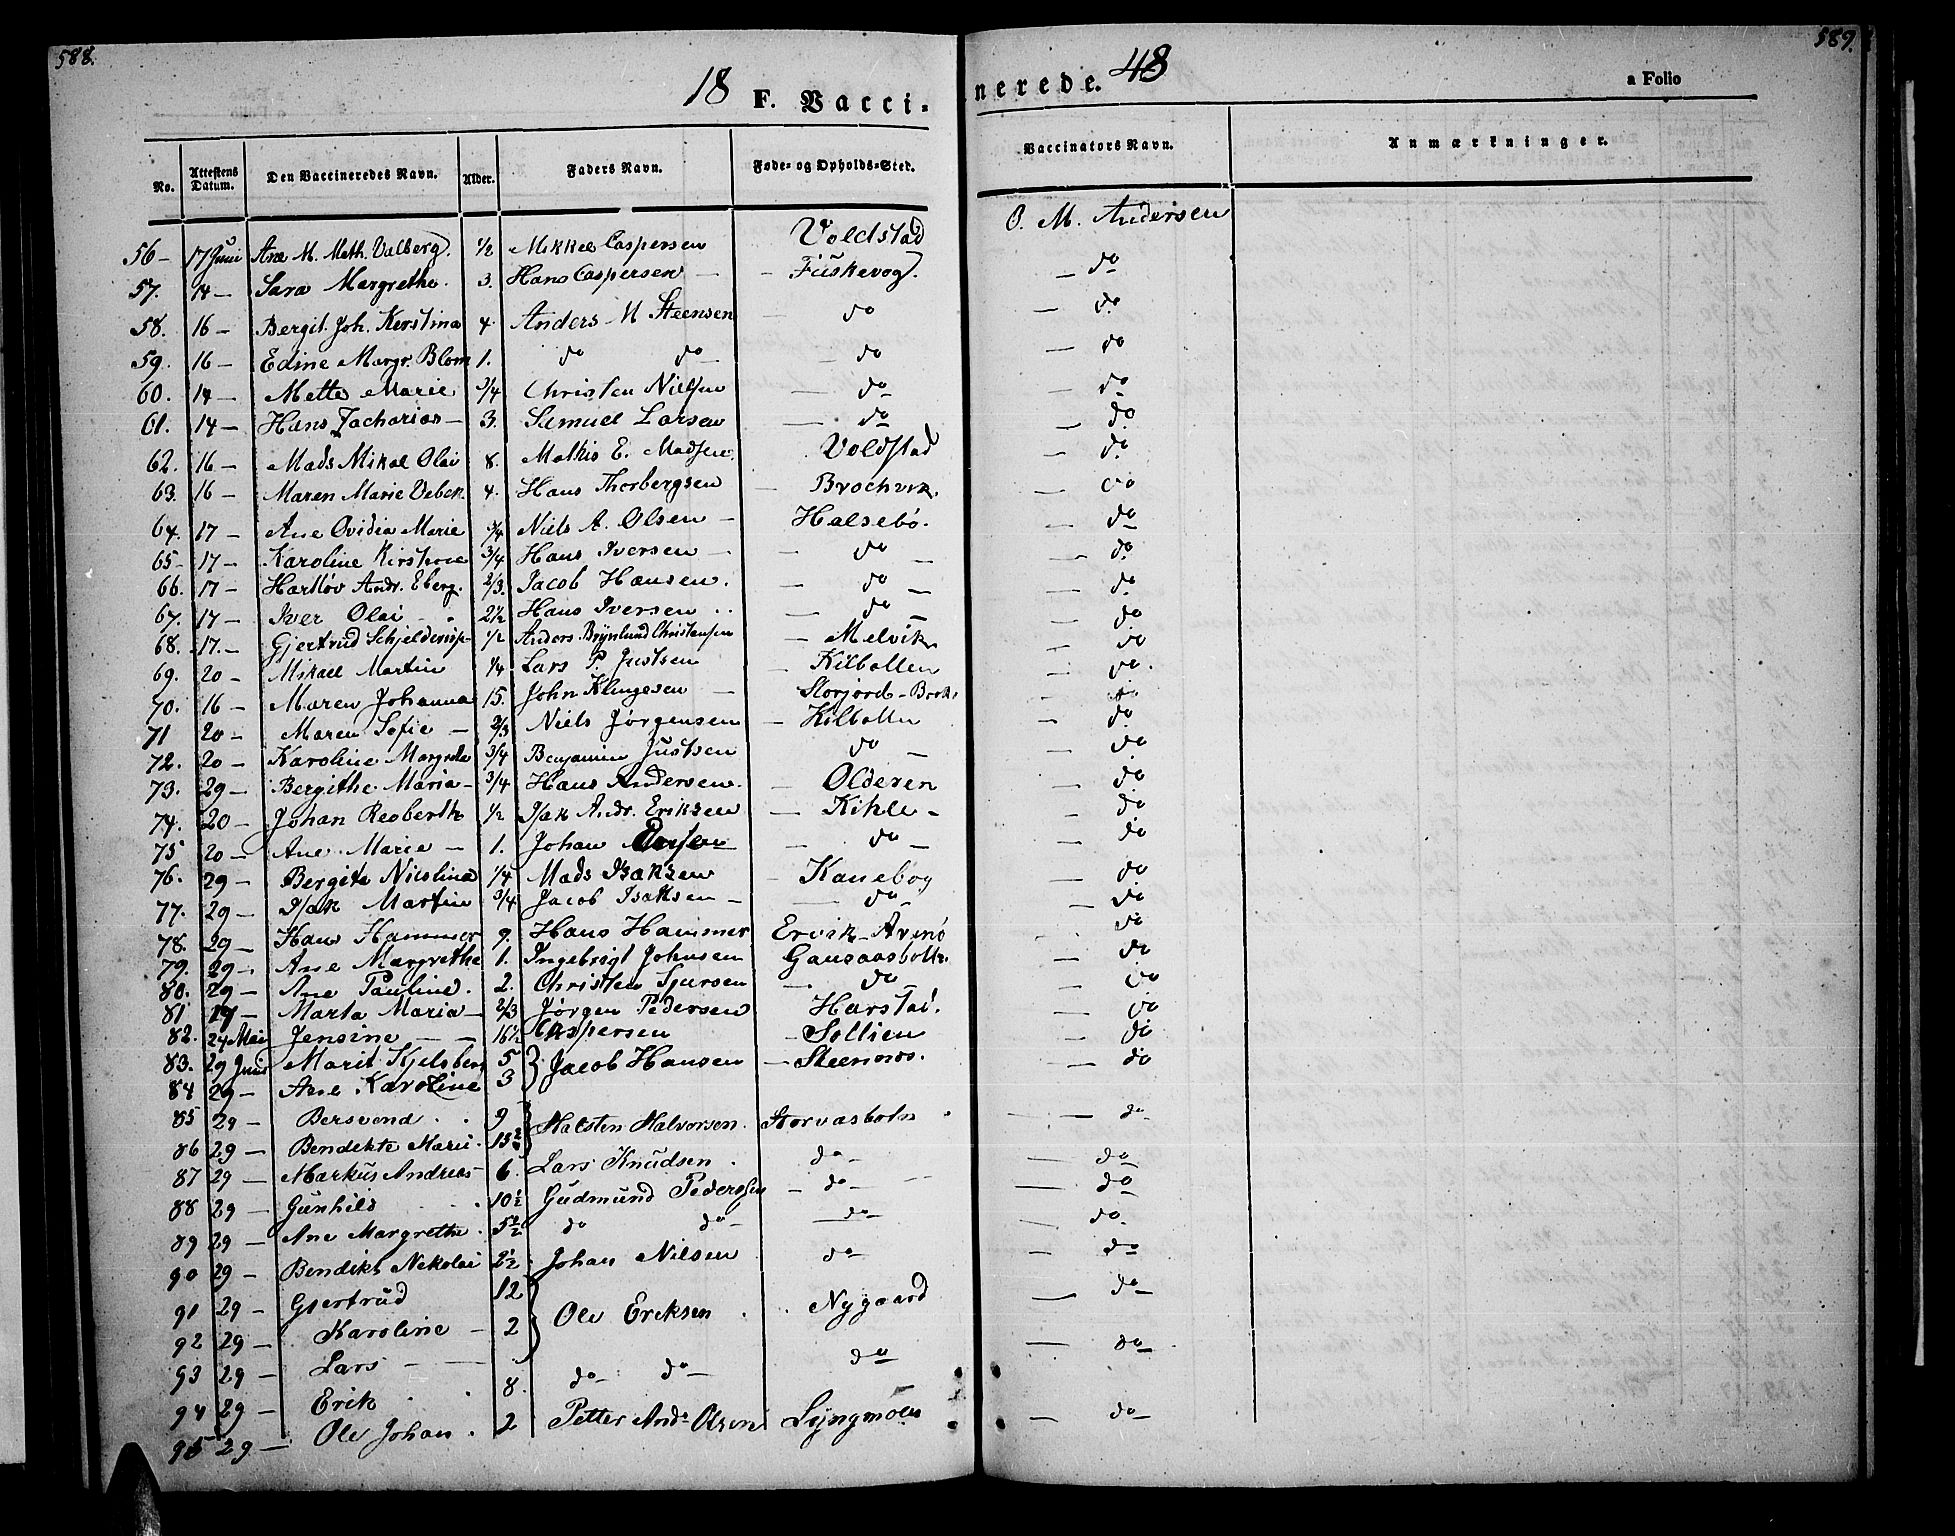 588.
589.
18 F. Vaccinerede. 48
a Folio
No. Attestens Datum. Den Vaccineredes Navn. Alder. Faders Navn. Føde- og Opholds-Sted. Vaccinators Navn. Anmærkninger.
56 - 17 Juni Ane M. Meth. Valberg. 1/2 Mikkel Caspersen Voldstad O. M. Andersen
57. 14 - Sara Margrethe. 3. Hans Caspersen - - Fuskevog. - do
58. 16 - Bergit. Joh. Kerstina 4. Anders M Steensen - do - do
59. 16 - Edine Margr. Blom 1. do do - do - do
60. 14 - Mette Marie 3/4 Christen Nielsen - do - do
61. 14 - Hans Zacharias - 3. Samuel Larsen - do - do
62. 16 - Mads Mikal Olai 8. Mathis E. Madsen. Voldstad - do
63. 16 - Maren Marie 4. Hans Thorbergsen - Brochvik. - do
64. 17 - Ane Ovidia Marie 3/4 Niels A. Olsen - Halsebø. - do
65 - 17 - Karoline Kirstine 3/4 Hans Iversen - - do - - do
66. 17 - Hartløv Andr. Eberg. 2/3. Jacob Hansen. - do - - do
67. 17 - Iver Olai 2 1/2 Hans Iversen - do - - do
68. 17. - Gjertrud Schjelderup- 1/2 Anders Brynlund Christensen - Melvik - do
69. 20 - Mikael Martin 1/4 Lars P. Justsen - Kilbotten - do.
70. 16 - Maren Johanna 15. John Klingesen - Storjord - Brok - do
71 20 - Maren Sofie - 2/3 Niels Jørgensen - Kilbotten - do
72. 20 - Karoline 3/4 Benjamin Justsen do - - do
73. 29 - Bergithe Maria - 3/4 Hans Andersen. - Olderen - do
74. 20 - Johan Regberth 1/2 Isak Andr. Eriksen - Kihle - - do
75 20 - Ane Maria - 1. Johan - do - - do
76. 29 - Bergite Nicolina 1/4 Mads Isaksen - Kanebog - do
77. 29 - Isak Martin 3/4 Jacob Isaksen - - do - - do
78. 29 - Hans Hammer 9. Hans Hammer Ervik - - do
79. 29 - Ane Margrethe 1. Ingebrigt Johnsen Gausaasbotn. - do
80. 29 - Ane Pauline. 2. Christen - do - - do
81 - Marta Maria - 2/3 Jørgen Pedersen Harstad. - do
82. 24 Mai Jensine - - 16 1/2 Caspersen - Sollien - do
83. 29 Juni Marit Kjelsberg 5 } Jacob Hansen - Steennes. - do
84 29 - Ane Karoline 3
85 29 - Bersvend 9 } Halsten Halvorsen. Storvasbotn - - do -
86 29 - Bendekte Marie.
87 29 - Markus Andreas 6. Lars Knudsen. do - - do
88 29 - Gunhild 10 1/2 Gudmund Pedersen - do - - do
89 29 - Ane Margrethe. 5 1/2 do do - - do - - do.
90 29 - Bendikt Nekolai 2 1/2 Johan Nilsen do - - do
91 29 - Gjertrud 12 } Ole Eriksen Nygaard - do -
92 29 - Karoline - 2
93 29 - Lars - - do - do - do - do -
94 29 - Erik 8.
95 29 - Ole Johan. 2 Petter Andr Olsen Lyngmoen - do -